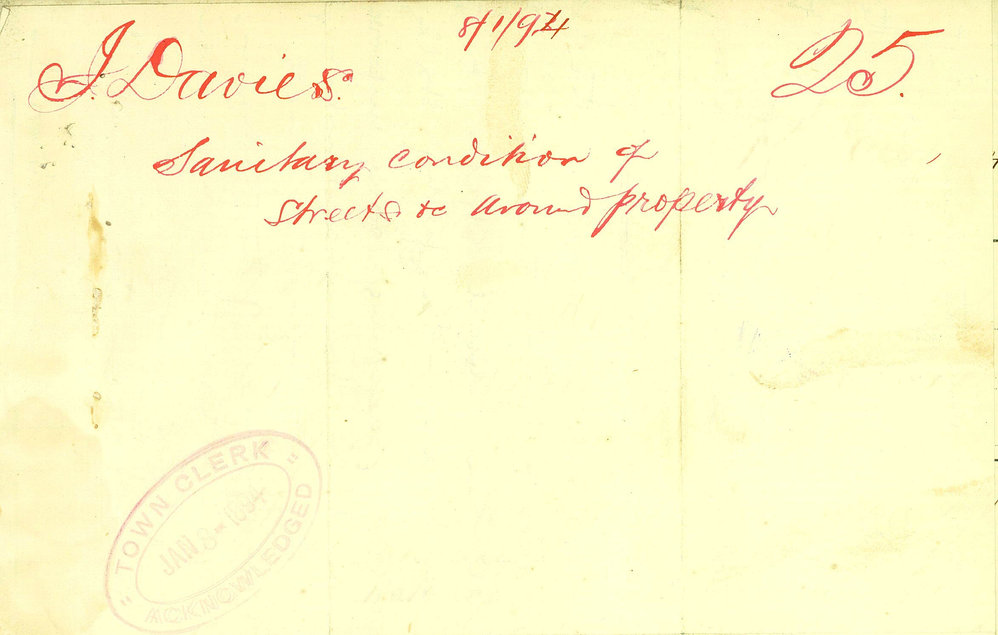 8/1/94
J. Davies.
25.
Sanitary condition of
Streets &c around property
TOWN CLERK
JAN 8 - 1894
ACKNOWLEDGED